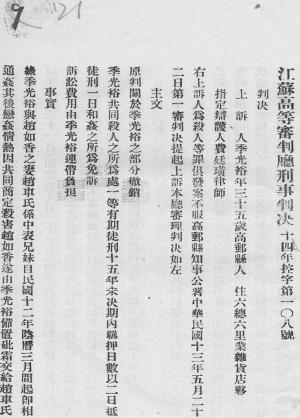 9
21
江蘇高等審判廳刑事判决十四年控字第一〇八號
判决
上訴人季光裕年三十五歲高郵縣人 住六總六里業雜貨店夥
指定辯護人費廷璜律師
右上訴人爲殺人等罪俱發案不服高郵縣知事公署中華民國十三年五月二十
二日第一審判决提起上訴本廳審理判决如左
主文
原判關於季光裕之部分撤銷
季光裕共同殺人之所爲處一等有期徒刑十五年未决期內羈押日數以二日抵
徒刑一日和姦之所爲免訴
訴訟費用由季光裕連帶負担
事實
緣季光裕與趙如香之妻趙車氏係中表兄妹自民國十二年陰曆三月間起卽相
通姦其後戀姦情熱因共同商定殺害趙如香遂由季光裕備置砒霜交給趙車氏